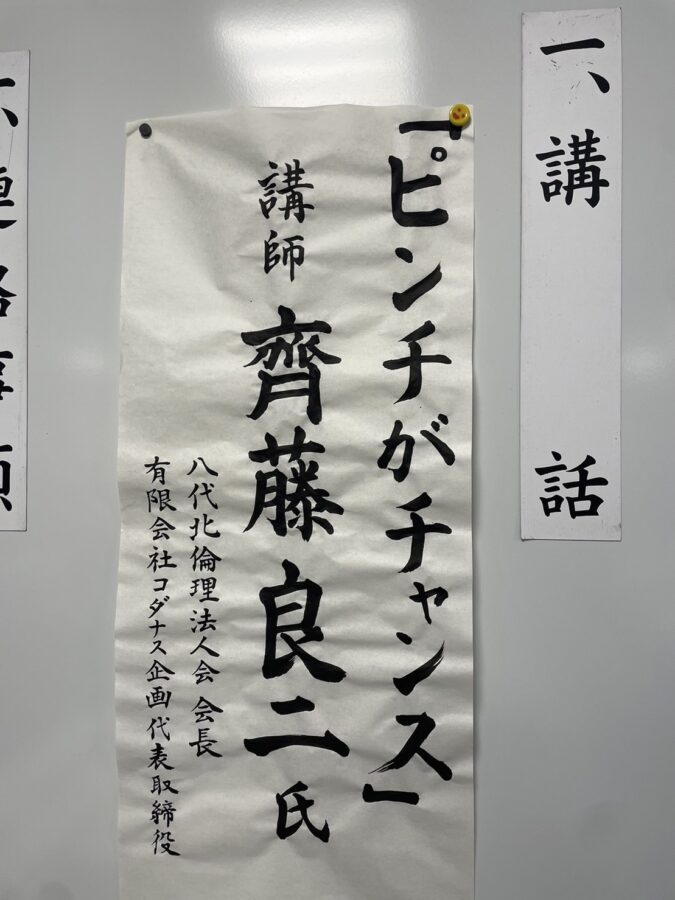 一、講話
「ピンチがチャンス」
講師 齊藤良二氏
八代北倫理法人会 会長
有限会社コダナス企画代表取締役